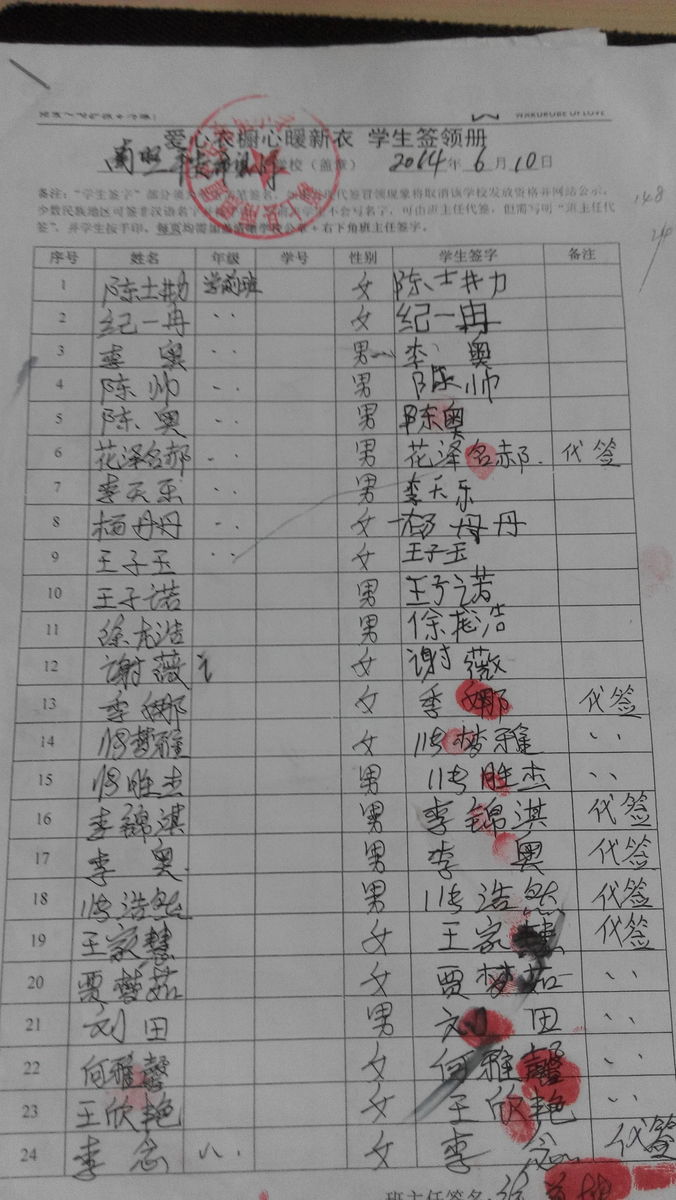 WARDROBE OF LOVE
爱心衣橱心暖新衣 学生签领册
学校（盖章） 2014年 6月10日
备注：“学生签字”部分须
代签冒领现象将取消该学校发放资格并网站公示。
少数民族地区可签非汉语名字
学生不会写名字，可由班主任代签，但需写明“班主任代
签”，并学生按手印。每页均需加盖清晰学校公章+右下角班主任签字。
148
序号 姓名 年级 学号 性别 学生签字 备注
1 陈士勣 学前班 女 陈士勣
2 纪一冉 〃 女 纪一冉
3 李奥 〃 男 李奥
4 陈帅 〃 男 陈帅
5 陈奥 〃 男 陈奥
6 花泽名郝 〃 男 花泽名郝 代签
7 李天乐 〃 男 李天乐
8 杨丹丹 〃 女 杨丹丹
9 王子玉 〃 女 王子玉
10 王子诺 男 王子诺
11 徐龙浩 男 徐龙浩
12 谢薇 女 谢薇
13 李娜 女 李娜 代签
14 梦雅 女 梦雅 〃
15 胜杰 男 胜杰 〃
16 李锦淇 男 李锦淇 代签
17 李奥 男 李奥 代签
18 浩然 男 浩然 代签
19 王家慧 女 王家慧 代签
20 贾梦茹 女 贾梦茹 〃
21 刘田 男 刘田 〃
22 何雅馨 女 何雅馨 〃
23 王欣艳 女 王欣艳 〃
24 李念 〃 女 李念 代签
班主任签名：